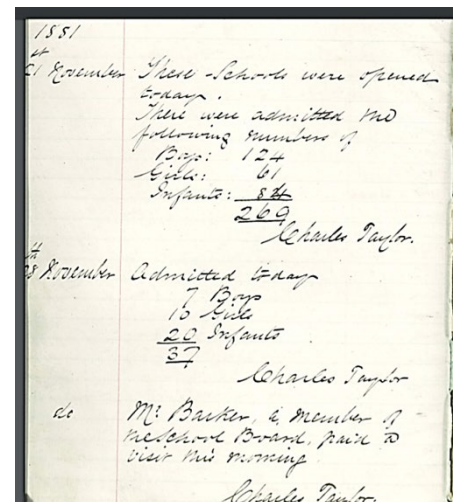 1881
21st November These Schools were opened
today.
There were admitted the
following numbers of
Boys: 124
Girls: 61
Infants: 84
269
Charles Taylor.
28th November Admitted today
7 Boys
10 Girls
20 Infants
37
Charles Taylor
do Mr. Barker, a member of
the School Board, paid a
visit this morning
Charles Taylor.